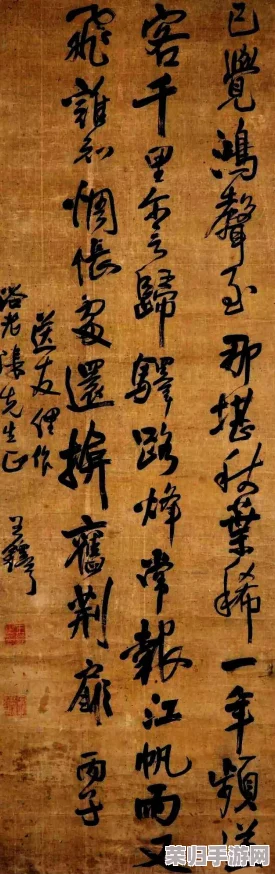 已覺鴻聲至那堪秋葉稀一年頻送
客千里尔言歸驛路烽常報江帆雨又
飛誰知惆悵處還掩舊荆扉 丙子
送友侄作
老 先生正
王鐸
荣归手游网